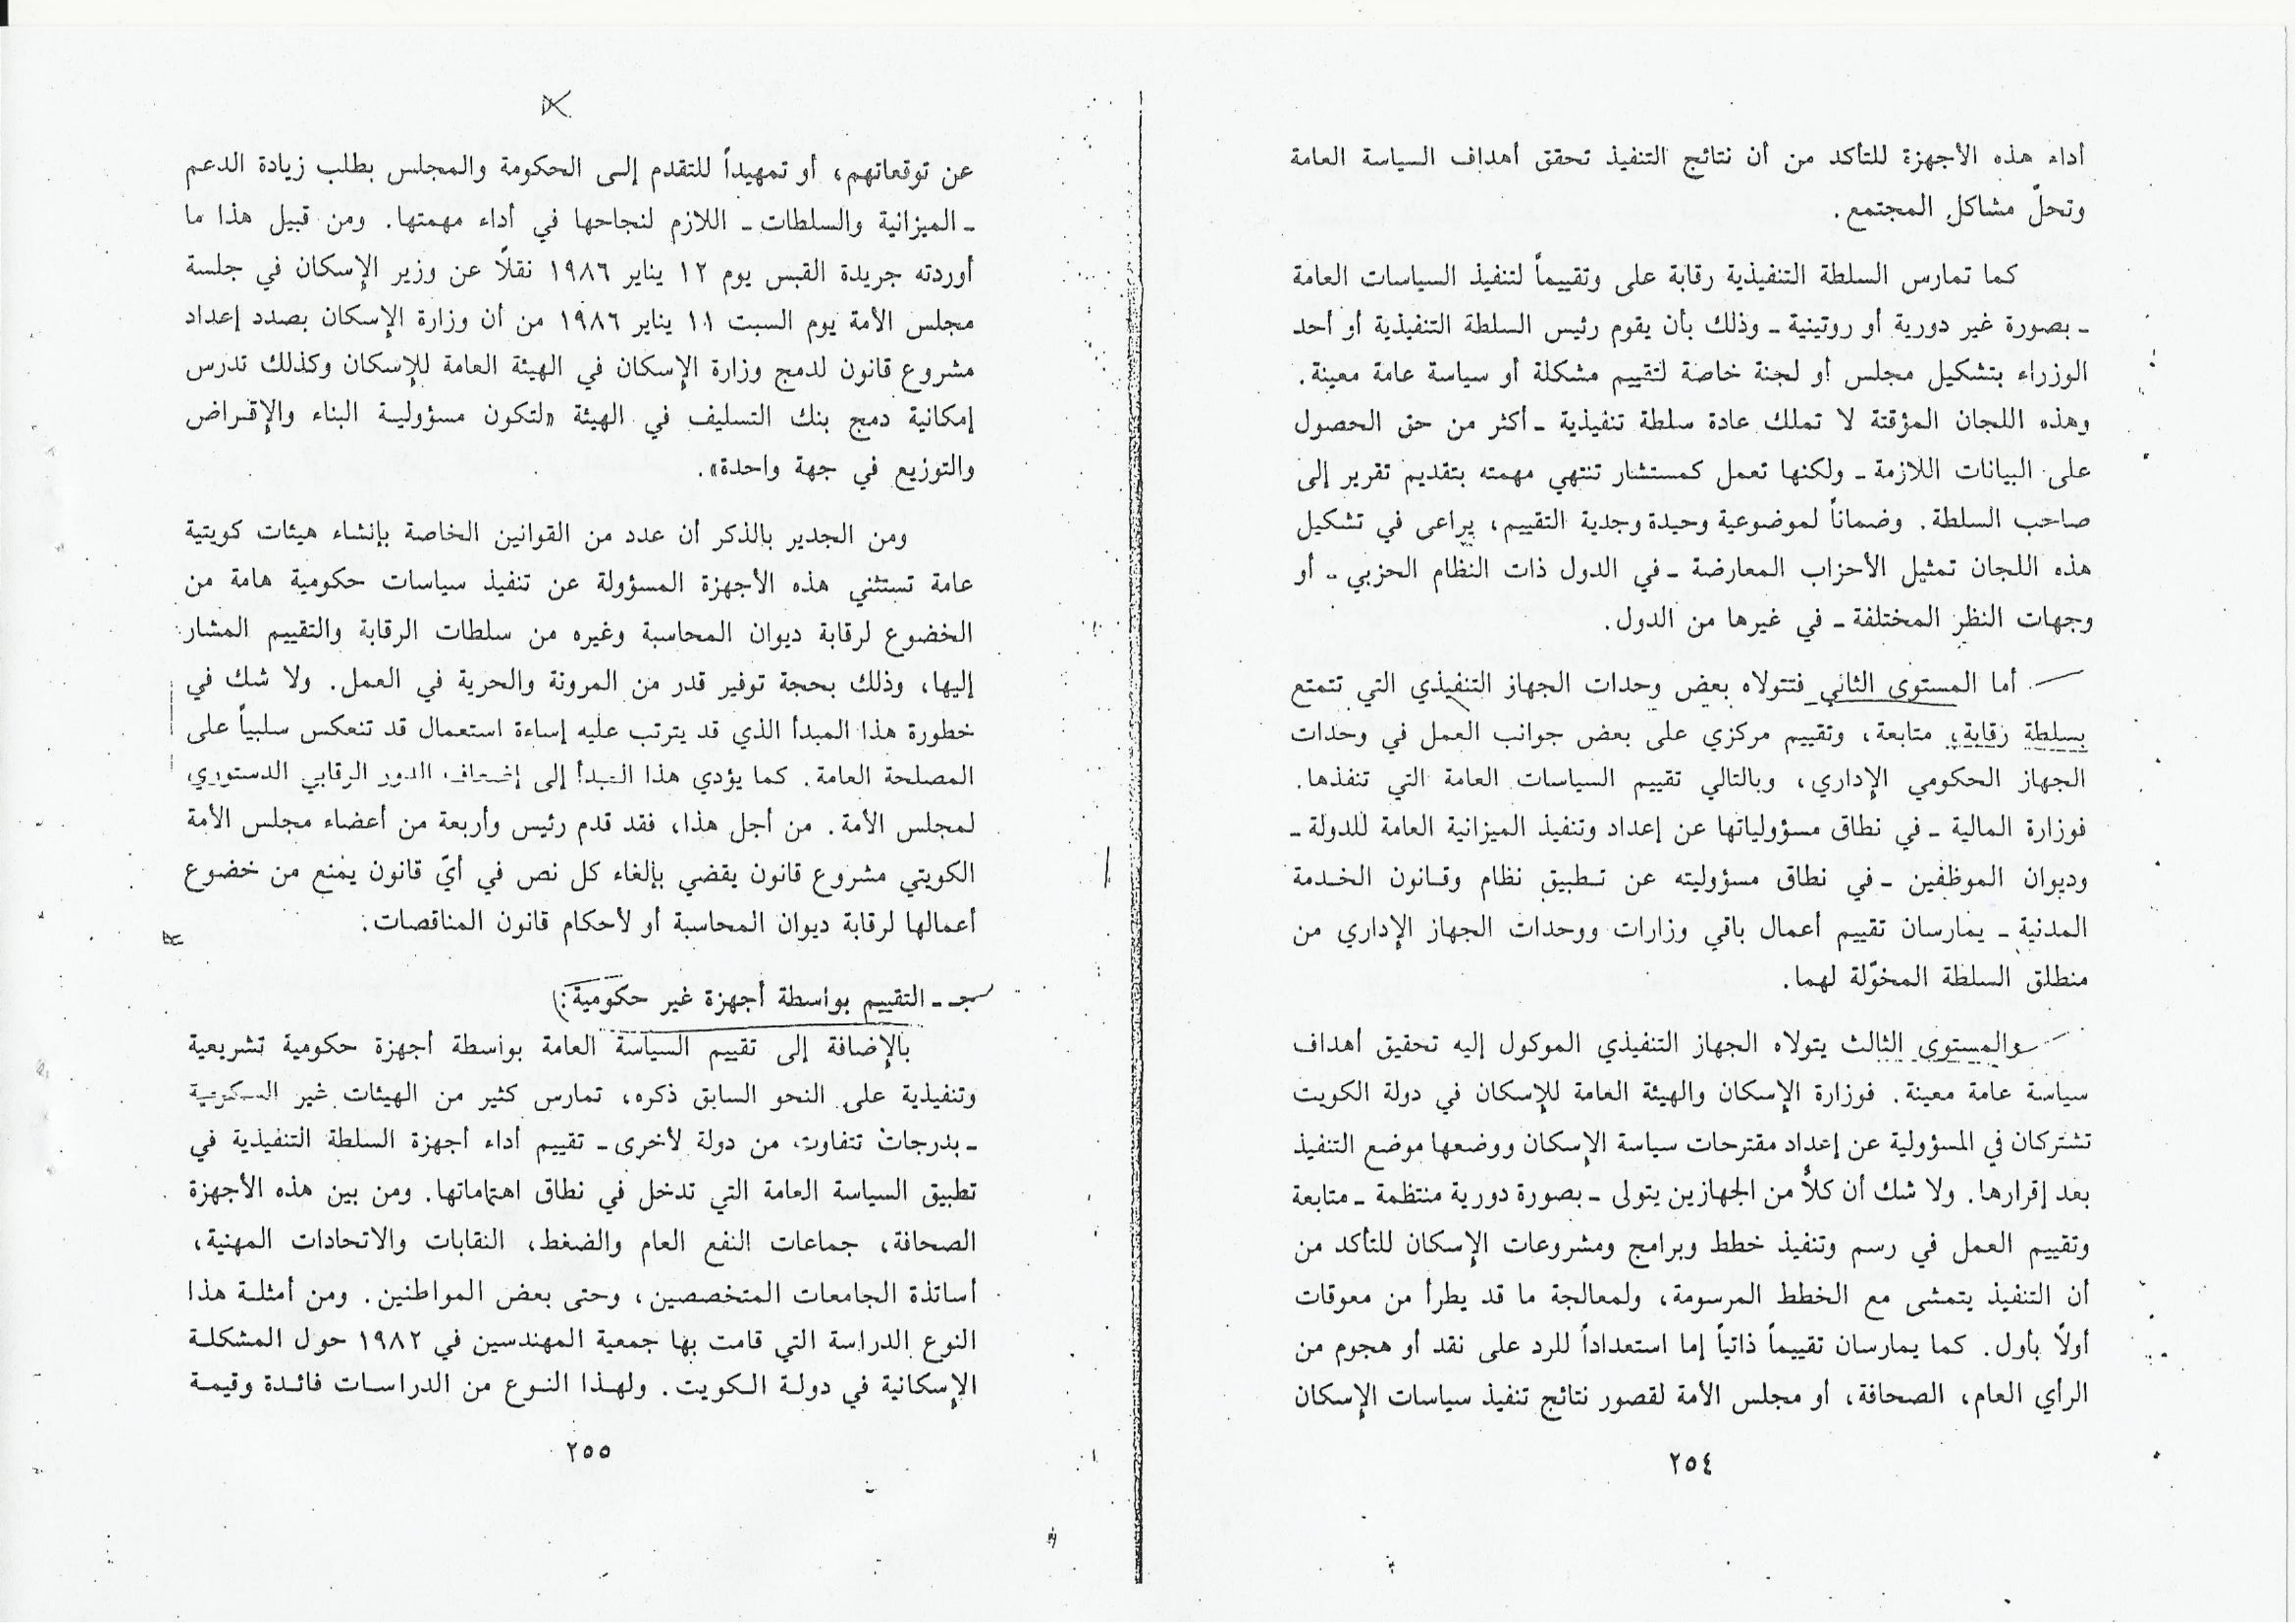 أداء هذه الأجهزة للتأكد من أن نتائج التنفيذ تحقق أهداف السياسة العامة
وتحلّ مشاكل المجتمع.
كما تمارس السلطة التنفيذية رقابة على وتقييماً لتنفيذ السياسات العامة
ـ بصورة غير دورية أو روتينية ـ وذلك بأن يقوم رئيس السلطة التنفيذية أو أحد
الوزراء بتشكيل مجلس أو لجنة خاصة لتقييم مشكلة أو سياسة عامة معينة.
وهذه اللجان المؤقتة لا تملك عادة سلطة تنفيذية ـ أكثر من حق الحصول
على البيانات اللازمة ـ ولكنها تعمل كمستشار تنتهي مهمته بتقديم تقرير إلى
صاحب السلطة. وضماناً لموضوعية وحيدة وجدية التقييم، يراعى في تشكيل
هذه اللجان تمثيل الأحزاب المعارضة ـ في الدول ذات النظام الحزبي ـ أو
وجهات النظر المختلفة ـ في غيرها من الدول.
أما المستوى الثاني فتتولاه بعض وحدات الجهاز التنفيذي التي تتمتع
بسلطة رقابة، متابعة، وتقييم مركزي على بعض جوانب العمل في وحدات
الجهاز الحكومي الإداري، وبالتالي تقييم السياسات العامة التي تنفذها.
فوزارة المالية ـ في نطاق مسؤولياتها عن إعداد وتنفيذ الميزانية العامة للدولة ـ
وديوان الموظفين ـ في نطاق مسؤوليته عن تطبيق نظام وقانون الخدمة
المدنية ـ يمارسان تقييم أعمال باقي وزارات ووحدات الجهاز الإداري من
منطلق السلطة المخوّلة لهما.
والمستوى الثالث يتولاه الجهاز التنفيذي الموكول إليه تحقيق أهداف
سياسة عامة معينة. فوزارة الإسكان والهيئة العامة للإسكان في دولة الكويت
تشتركان في المسؤولية عن إعداد مقترحات سياسة الإسكان ووضعها موضع التنفيذ
بعد إقرارها. ولا شك أن كلاًّ من الجهازين يتولى ـ بصورة دورية منتظمة ـ متابعة
وتقييم العمل في رسم وتنفيذ خطط وبرامج ومشروعات الإسكان للتأكد من
أن التنفيذ يتمشى مع الخطط المرسومة، ولمعالجة ما قد يطرأ من معوقات
أولاً بأول. كما يمارسان تقييماً ذاتياً إما استعداداً للرد على نقد أو هجوم من
الرأي العام، الصحافة، أو مجلس الأمة لقصور نتائج تنفيذ سياسات الإسكان
٢٥٤
عن توقعاتهم، أو تمهيداً للتقدم إلى الحكومة والمجلس بطلب زيادة الدعم
ـ الميزانية والسلطات ـ اللازم لنجاحها في أداء مهمتها. ومن قبيل هذا ما
أوردته جريدة القبس يوم ١٢ يناير ١٩٨٦ نقلاً عن وزير الإسكان في جلسة
مجلس الأمة يوم السبت ١١ يناير ١٩٨٦ من أن وزارة الإسكان بصدد إعداد
مشروع قانون لدمج وزارة الإسكان في الهيئة العامة للإسكان وكذلك تدرس
إمكانية دمج بنك التسليف في الهيئة «لتكون مسؤولية البناء والإقراض
والتوزيع في جهة واحدة».
ومن الجدير بالذكر أن عدد من القوانين الخاصة بإنشاء هيئات كويتية
عامة تستثني هذه الأجهزة المسؤولة عن تنفيذ سياسات حكومية هامة من
الخضوع لرقابة ديوان المحاسبة وغيره من سلطات الرقابة والتقييم المشار
إليها، وذلك بحجة توفير قدر من المرونة والحرية في العمل. ولا شك في
خطورة هذا المبدأ الذي قد يترتب عليه إساءة استعمال قد تنعكس سلبياً على
المصلحة العامة. كما يؤدي هذا المبدأ إلى إضعاف الدور الرقابي الدستوري
لمجلس الأمة. من أجل هذا، فقد قدم رئيس وأربعة من أعضاء مجلس الأمة
الكويتي مشروع قانون يقضي بإلغاء كل نص في أيّ قانون يمنع من خضوع
أعمالها لرقابة ديوان المحاسبة أو لأحكام قانون المناقصات.
جـ ـ التقييم بواسطة أجهزة غير حكومية:
بالإضافة إلى تقييم السياسة العامة بواسطة أجهزة حكومية تشريعية
وتنفيذية على النحو السابق ذكره، تمارس كثير من الهيئات غير الحكومية
ـ بدرجات تتفاوت من دولة لأخرى ـ تقييم أداء أجهزة السلطة التنفيذية في
تطبيق السياسة العامة التي تدخل في نطاق اهتماماتها. ومن بين هذه الأجهزة
الصحافة، جماعات النفع العام والضغط، النقابات والاتحادات المهنية،
أساتذة الجامعات المتخصصين، وحتى بعض المواطنين. ومن أمثلة هذا
النوع الدراسة التي قامت بها جمعية المهندسين في ١٩٨٢ حول المشكلة
الإسكانية في دولة الكويت. ولهذا النوع من الدراسات فائدة وقيمة
٢٥٥